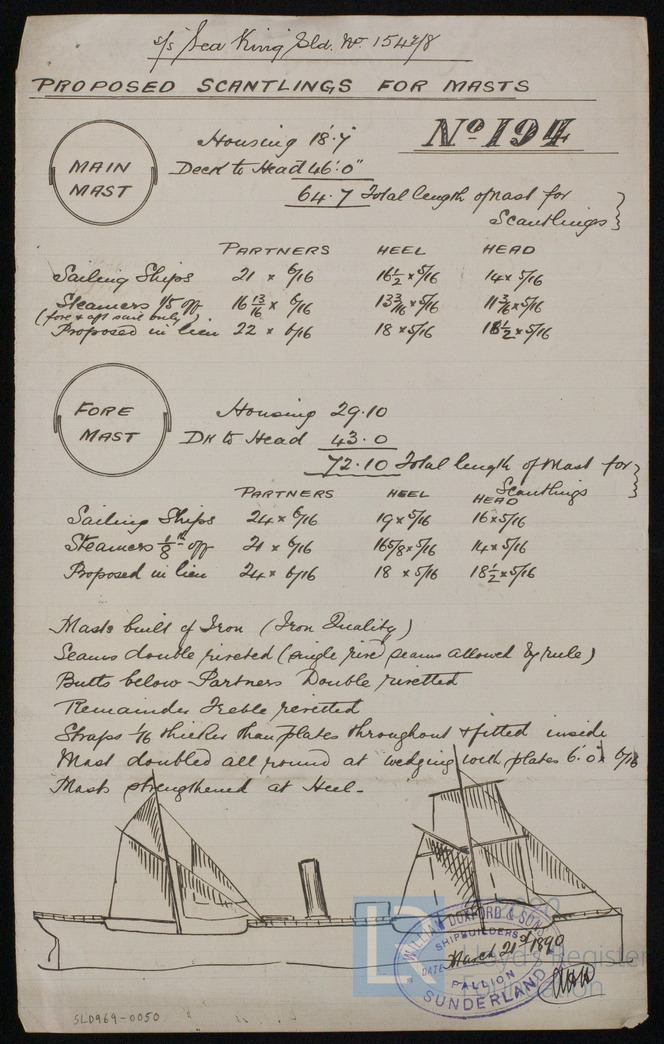 s/s Sea King Sld. No. 154 2/8
PROPOSED SCANTLINGS FOR MASTS
No 194
MAIN MAST
Housing 18.7
Deck to Head 46.0"
64.7 Total length of Mast for Scantlings }
PARTNERS HEEL HEAD
Sailing Ships 21 x 6/16 16 1/2 x 5/16 14 x 5/16
Steamers 1/5 off 16 13/16 x 6/16 13 3/16 x 5/16 11 3/16 x 5/16
(fore & aft sail only)
Proposed in lieu 22 x 6/16 18 x 5/16 18 1/2 x 5/16
FORE MAST
Housing 29.10
Dk to Head 43.0
72.10 Total length of Mast for Scantlings }
PARTNERS HEEL HEAD
Sailing Ships 24 x 6/16 19 x 5/16 16 x 5/16
Steamers 1/8th off 21 x 6/16 16 5/8 x 5/16 14 x 5/16
Proposed in lieu 24 x 6/16 18 x 5/16 18 1/2 x 5/16
Masts built of Iron (Iron Quality)
Seams double riveted (single rivd seams allowed by rule)
Butts below Partners Double rivetted
Remainder Treble rivetted
Straps 1/16 thicker than plates throughout & fitted inside
Mast doubled all round at wedging with plates 6.0 x 6/16
Masts strengthened at Heel-
WILLIAM DOXFORD & SONS
SHIPBUILDERS
DATE March 21st 1890
PALLION
SUNDERLAND
LR
Lloyd's Register
Foundation
SLD969-0050